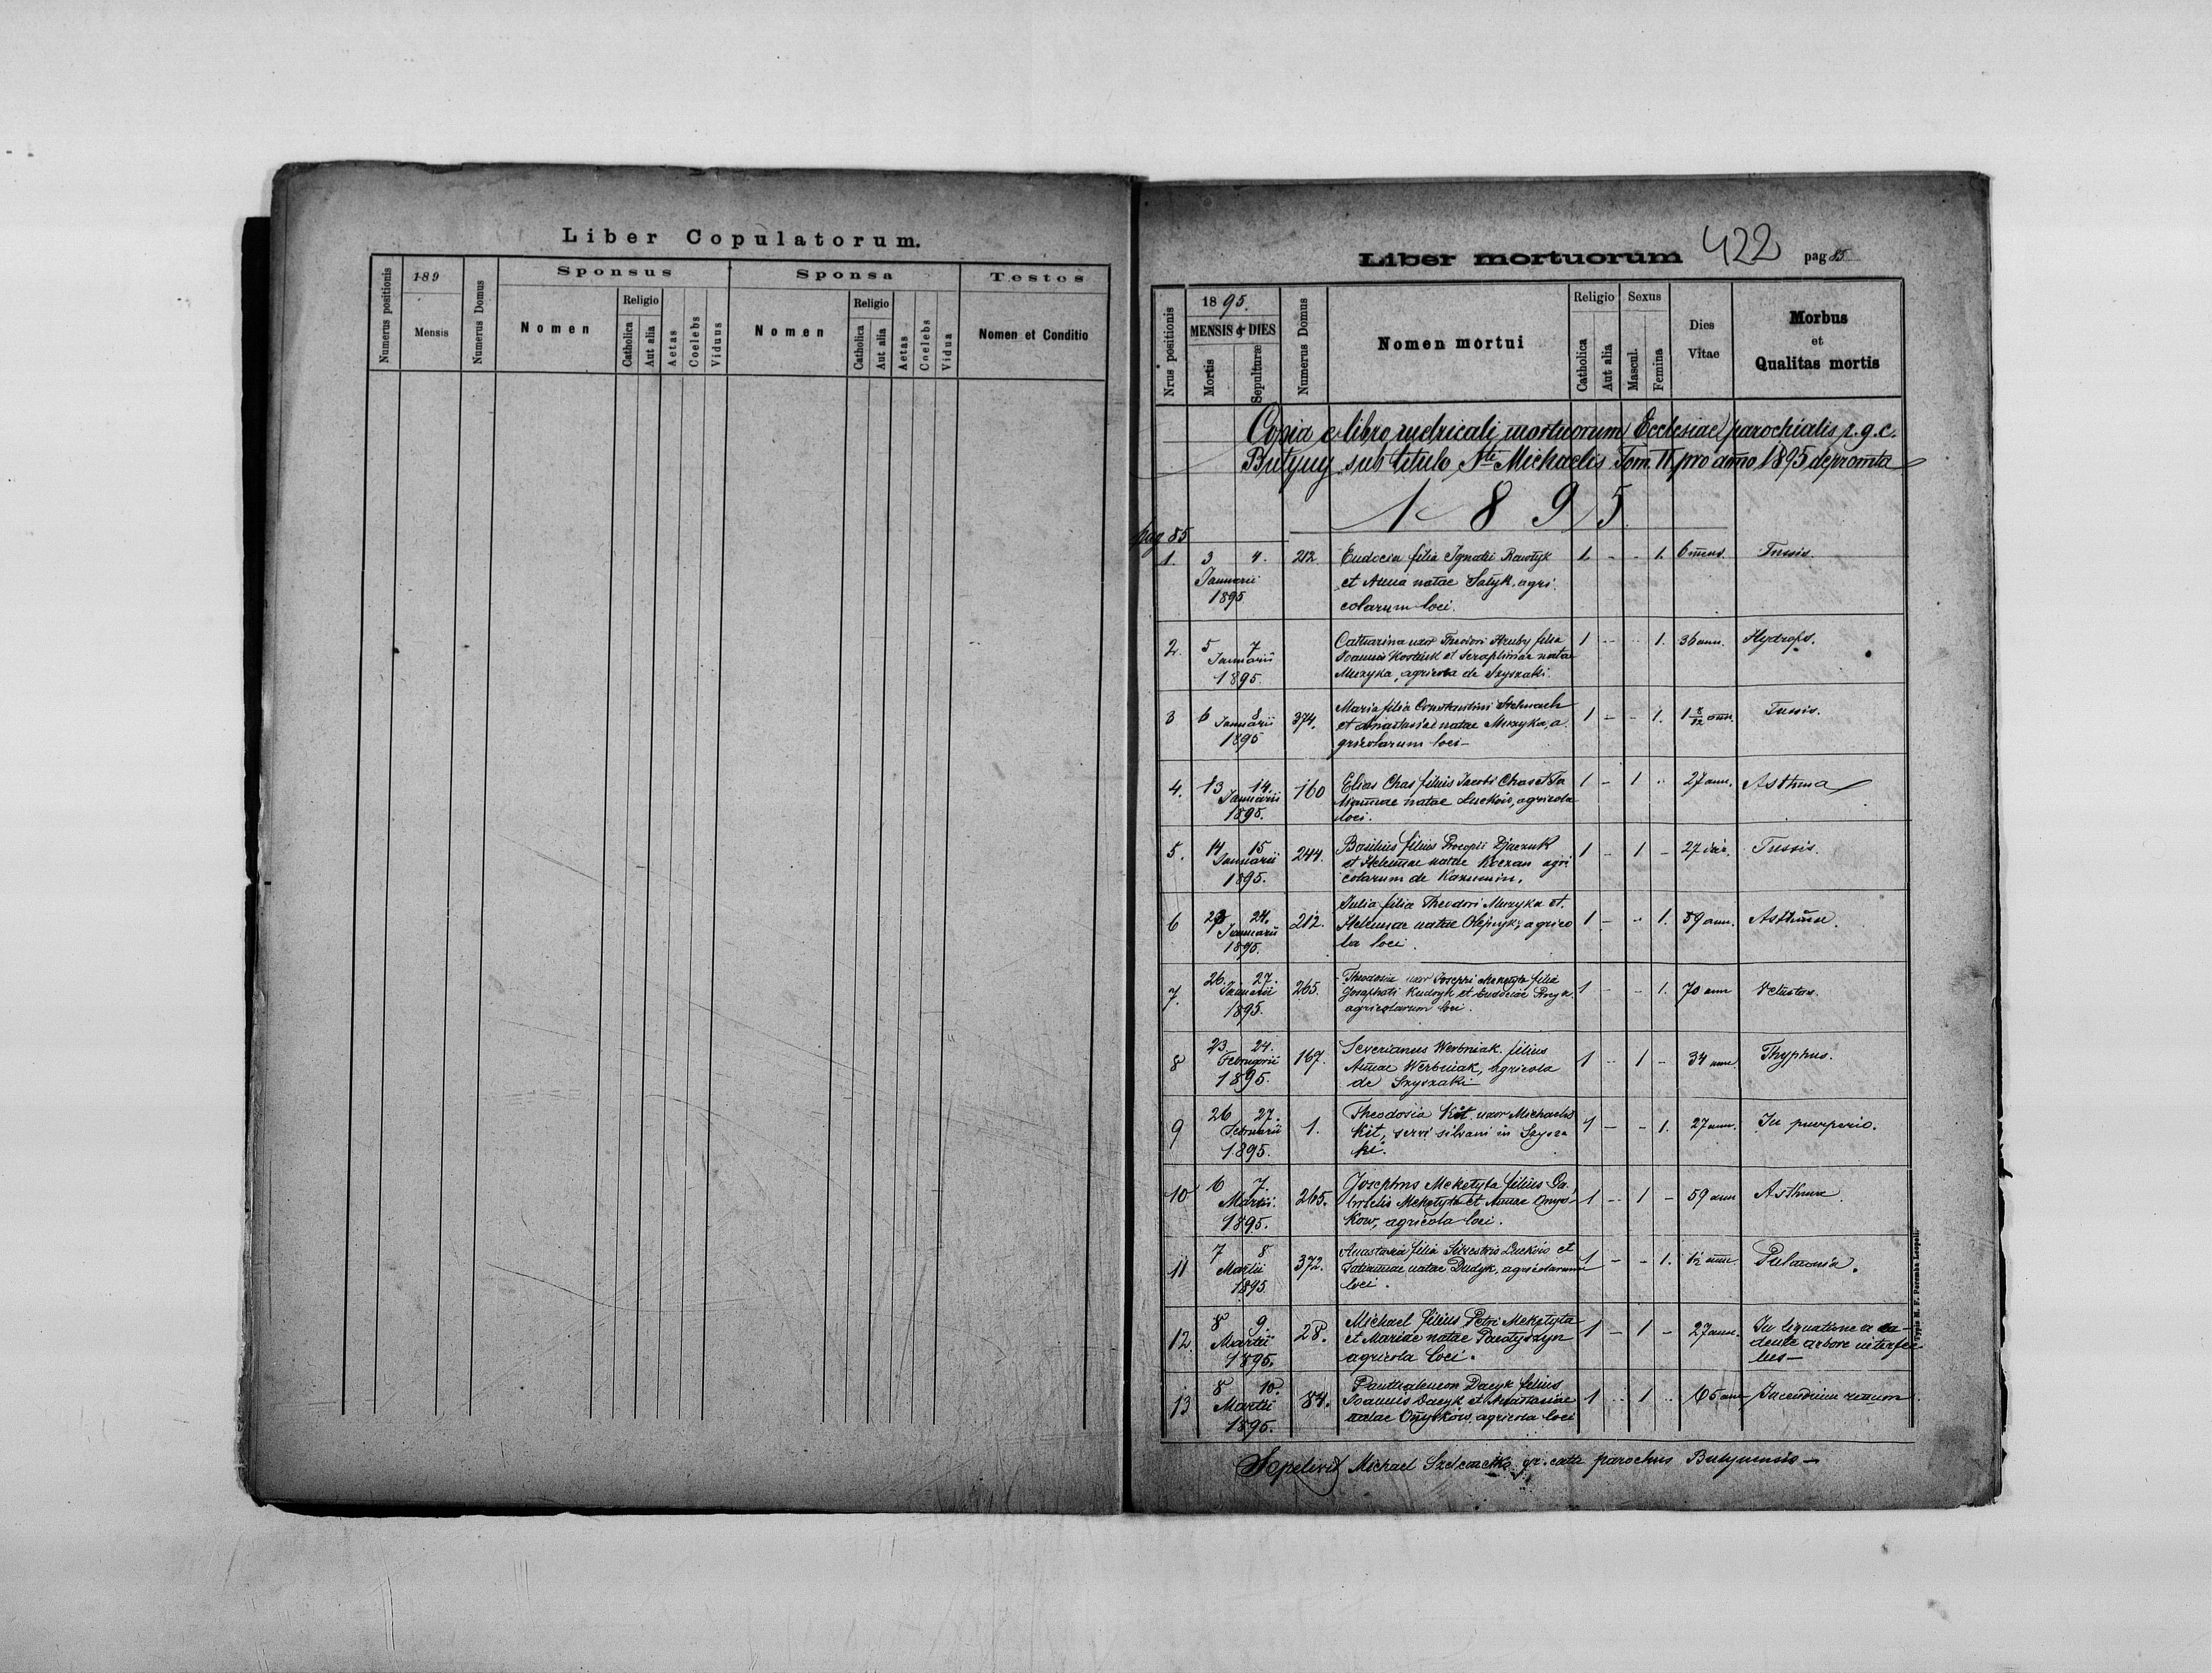 Liber Copulatorum.
Numerus positionis
189
Mensis
Numerus Domus
Sponsus
Nomen
Religio
Catholica
Aut alia
Aetas
Coelebs
Viduus
Sponsa
Nomen
Religio
Catholica
Aut alia
Aetas
Coelebs
Vidua
Testes
Nomen et Conditio
Liber mortuorum 422 pag 85
Nrus positionis
1895.
MENSIS & DIES
Mortis
Sepulturæ
Numerus Domus
Nomen mortui
Religio
Catholica
Aut alia
Sexus
Mascul.
Femina
Dies
Vitae
Morbus
et
Qualitas mortis
Copia e libro metricali mortuorum Ecclesiae parochialis r.g.c.
Butyny sub titulo Sti Michaelis Tom. II pro anno 1895 depromta
1895
pag 85
1. 3 4. 212. Eudocia filia Ignatii Rawłyk 1 - - 1. 6 mens. Tussis.
Januarii et Anna natae Satyk, agri
1895 colarum loci.
2. 5 7 Catharina uxor Theodori Hruby filia 1 - - 1. 36 ann. Hydrops.
Januarii Joannis et Seraphinae natae
1895. Muzyka, agricola de Szyszaki.
3 6 8 374. Maria filia Constantini Stelmach 1 - - 1. 1 8/12 ann. Tussis.
Januarii et Anastasiae natae Muzyka, a
1895 gricolarum loci -
4. 13 14. 160 Elias Chas filius Jacobi Chas et Ta 1 - 1 - 27 ann. Asthma
Januarii natae Łuckow, agricola
1895. loci.
5. 14 15 244. Basilius filius Procopii 1 - 1 - 27 Tussis.
Januarii et Helenae natae Koczan agri
1895. colarum de Kazumin.
6 23 24. 212. Julia filia Theodori Muzyka et 1 - - 1. 59 ann. Asthma.
Januarii Helenae natae Olejnyk, agrico
1895. la loci.
7. 26. 27. 265. Theodosia uxor Josephi Meketyta filia 1 - - 1. 70 ann Vetustas.
Januarii Josaphati et Eudociae
1895. agricolarum loci.
8 23 24. 167. Severianus Werbniak filius 1 - 1 - 34 ann Thyphus.
Februarii Annae Werbniak, agricola
1895. de Szyszaki
9 26 27. 1. Theodosia Kit uxor Michaelis 1 - - 1. 27 ann. In puerperio.
Februarii Kit, servi silvani in Szysza
1895. ki.
10 6 7. 265. Josephus Meketyta filius Pa 1 - 1 - 59 ann Asthma.
Martii Meketyta et Annae Onys
1895. kow, agricola loci.
11 7 8 372. Anastasia filia Silvestris Łuckow et 1 - - 1. 1/2 ann Pulmonia.
Martii Tatiannae natae Dudyk, agricolarum
1895 loci.
12. 8 9. 28. Michael filius Petri Meketyta 1 - 1 - 27 ann. In lignatione a ca-
Martii et Mariae natae agricola loci. dente arbore interfec
1895. tus -
13 8 10. 84. Panthaleemon Dacyk filius 1 - 1 - 65 ann
Martii Joannis Dacyk et Anastasiae
1895. natae Onyskow, agricola loci
Sepelivit Michael gr. cath. parochus Butynensis -
Typis M. F. Poremba Leopoli.